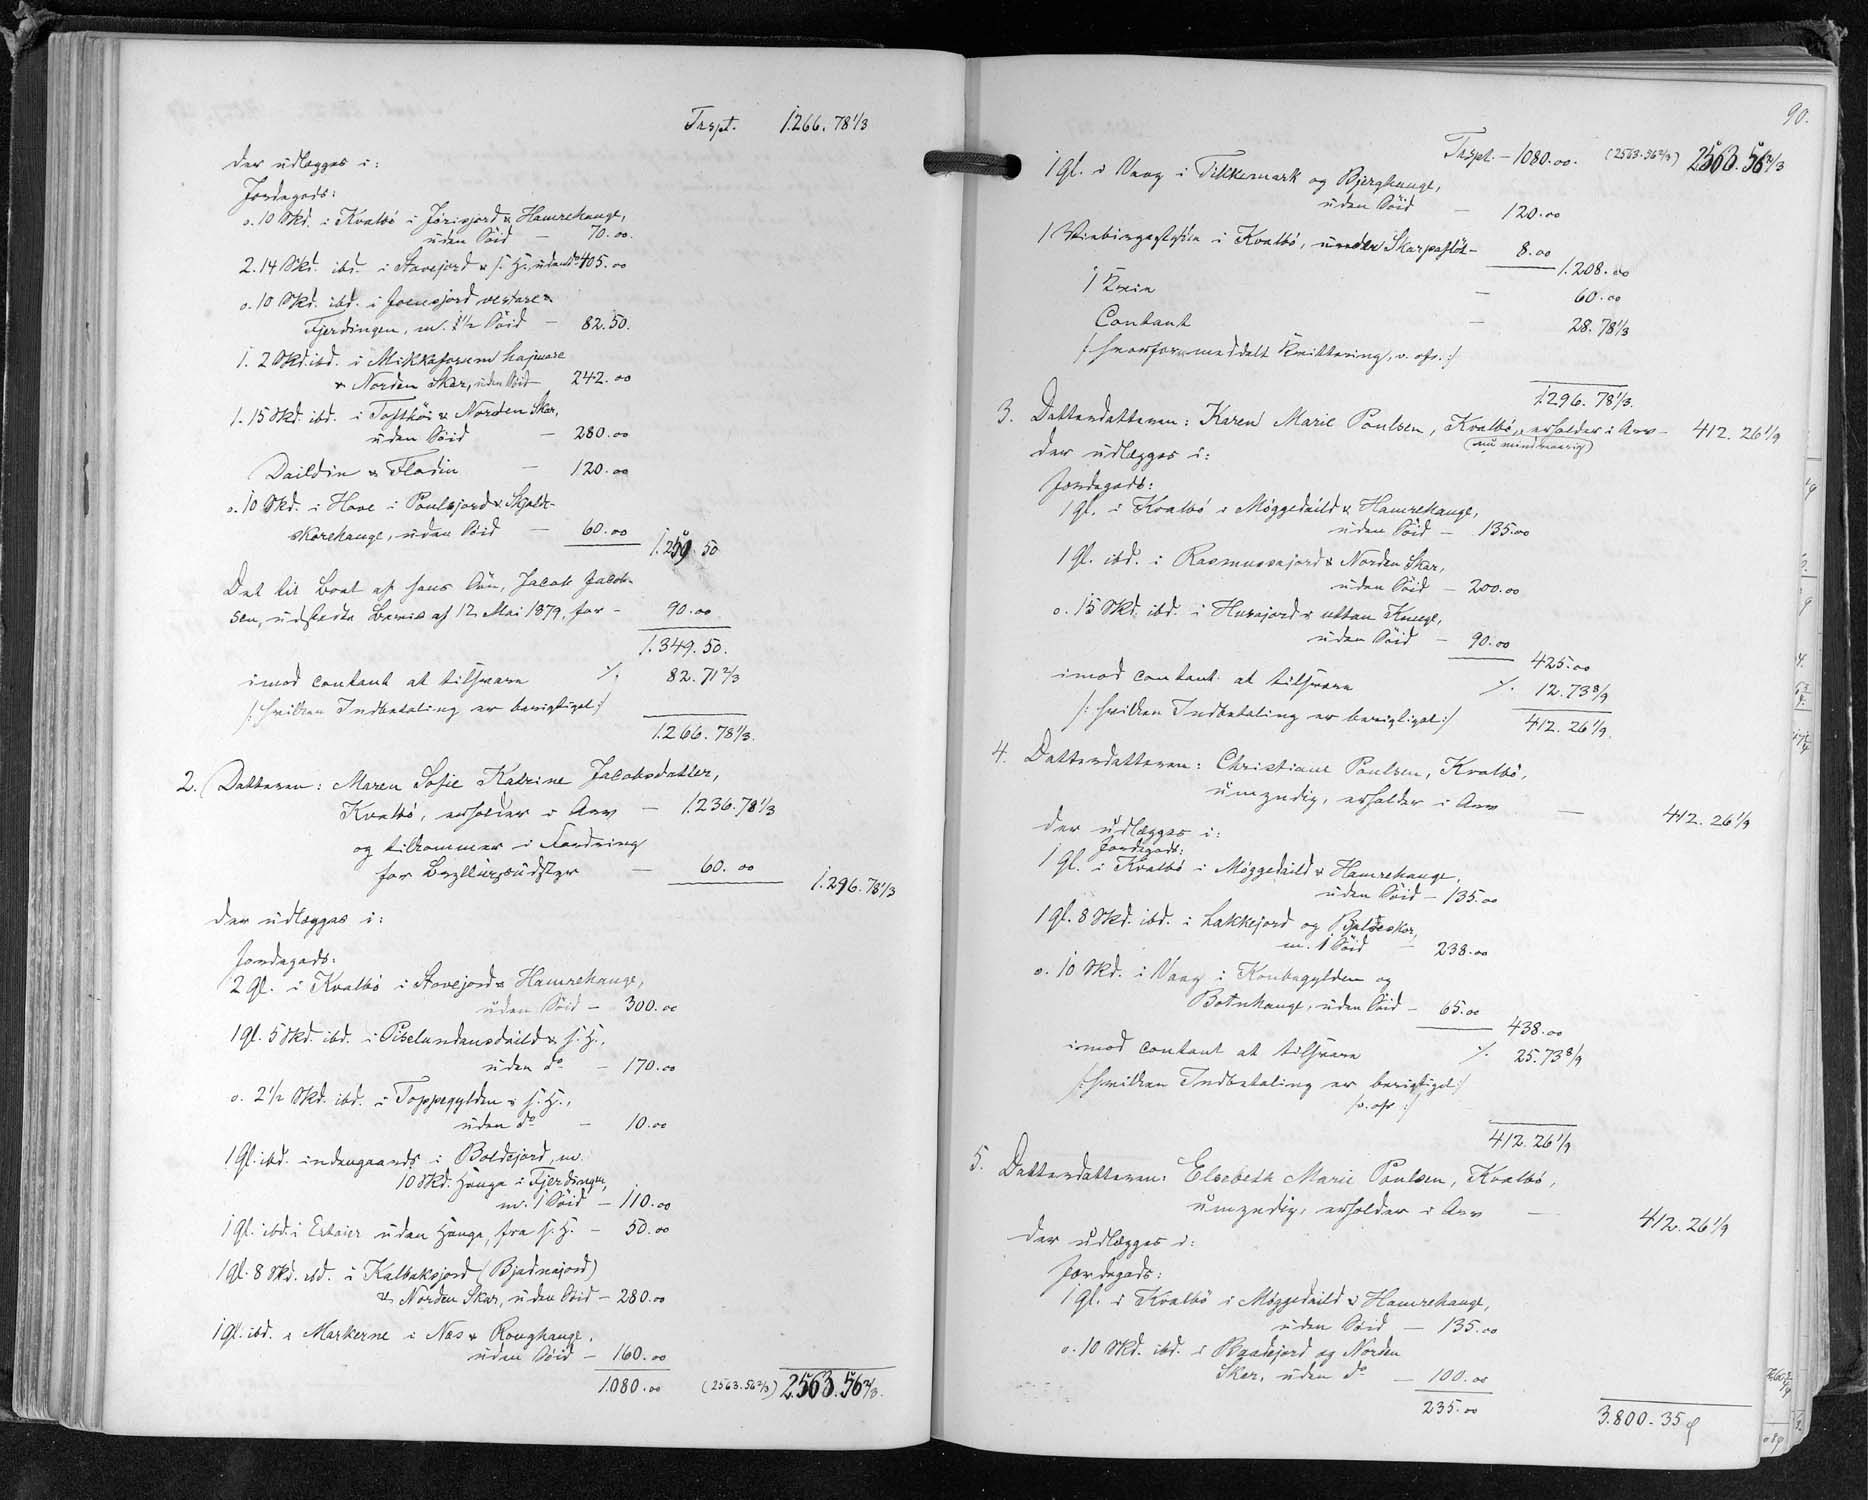 Trspt. 1.266. 78 1/3
der udlægges i:
Jordegods:
o. 10 Skd. i Kvalbö i Jórisjord & Hamrehauge,
uden Söid — 70.00.
2. 14 Skd. ibd. i Stovejord & s. H., uden do 405.00
o. 10 Skd. ibd. i Joensjord vestare &
Fjerdingen, m. 1 1/2 Söid — 82.50.
1. 2 Skd. ibd. i hajmare
& Norden Skar, uden Söid — 242.00
1. 15 Skd. ibd. i & Norden Skar,
uden Söid — 280.00
Daildin & Fladin — 120.00
o. 10 Skd. i Hove i Poulsjord & Skjald-
skorehauge, uden Söid — 60.00
1.259.50
Det til Boet af hans Sön, Jacob Jacob-
sen, udstedte Bevis af 12 Mai 1879, for — 90.00
1.349.50.
imod contant at tilsvare ./. 82.71 2/3
/: hvilken Indbetaling er berigtiget :/
1.266.78 1/3.
2. Datteren: Maren Sofie Katrine Jacobsdatter,
Kvalbö, erholder i Arv — 1.236.78 1/3
og tilkommer i Fordring
for Bryllupsudstyr — 60.00
1.296.78 1/3
der udlægges i:
Jordegods:
2 Gl. i Kvalbö i Stovejord & Hamrehauge,
uden Söid — 300.00
1 Gl. 5 Skd. ibd. i & s. H.,
uden do — 170.00
o. 2 1/2 Skd. ibd. i Toppegylden & s. H.,
uden do — 10.00
1 Gl. ibd. indengaards i Boldejord, m.
10 Skd. Hauge i Fjerdingen,
m. 1 Söid — 110.00
1 Gl. ibd. i uden Hauge, fra s. H. — 50.00
1 Gl. 8 Skd. ibd. i Kalbaksjord (Bjadnajord)
& Norden Skar, uden Söid — 280.00
1 Gl. ibd. i Markerne i Næs & Roughauge,
uden Söid — 160.00
1.080.00 (2563.56 2/3) 2.563.56 2/3.
90.
Trspt. — 1080.00. (2563.56 2/3) 2563.56 2/3
1 Gl. i Vaag i Tikkemark og Bjerghauge,
uden Söid — 120.00
1 i Kvalbö, — 8.00
1.208.00
1 Kvie — 60.00
Contant — 28.78 1/3
/: hvorfor meddelt Kvittering, :/
1.296.78 1/3.
3. Datterdatteren: Karen Marie Poulsen, Kvalbö, erholder i Arv — 412.26 1/9
(nu mindreaarig)
der udlægges i:
Jordegods:
1 Gl. i Kvalbö i Möggedaild & Hamrehauge,
uden Söid — 135.00
1 Gl. ibd. i Rasmussajord & Norden Skar,
uden Söid — 200.00
o. 15 Skd. ibd. i Husajord & uttan Knuge,
uden Söid — 90.00
425.00
imod contant at tilsvare ./. 12.73 8/9
/: hvilken Indbetaling er berigtiget :/
412.26 1/9.
4. Datterdatteren: Christiane Poulsen, Kvalbö,
umyndig, erholder i Arv — 412.26 1/9
der udlægges i:
Jordegods:
1 Gl. i Kvalbö i Möggedaild & Hamrehauge,
uden Söid — 135.00
1 Gl. 8 Skd. ibd. i Lakkejord og
m. 1 Söid — 238.00
o. 10 Skd. i Vaag i Koubagylden og
Botnhauge, uden Söid — 65.00
438.00
imod contant at tilsvare ./. 25.73 8/9
/: hvilken Indbetaling er berigtiget :/
412.26 1/9
5. Datterdatteren: Elsebeth Marie Poulsen, Kvalbö,
umyndig, erholder i Arv — 412.26 1/9
der udlægges i:
Jordegods:
1 Gl. i Kvalbö i Möggedaild & Hamrehauge,
uden Söid — 135.00
o. 10 Skd. ibd. i og Norden
Skar, uden do — 100.00
235.00
3.800.35